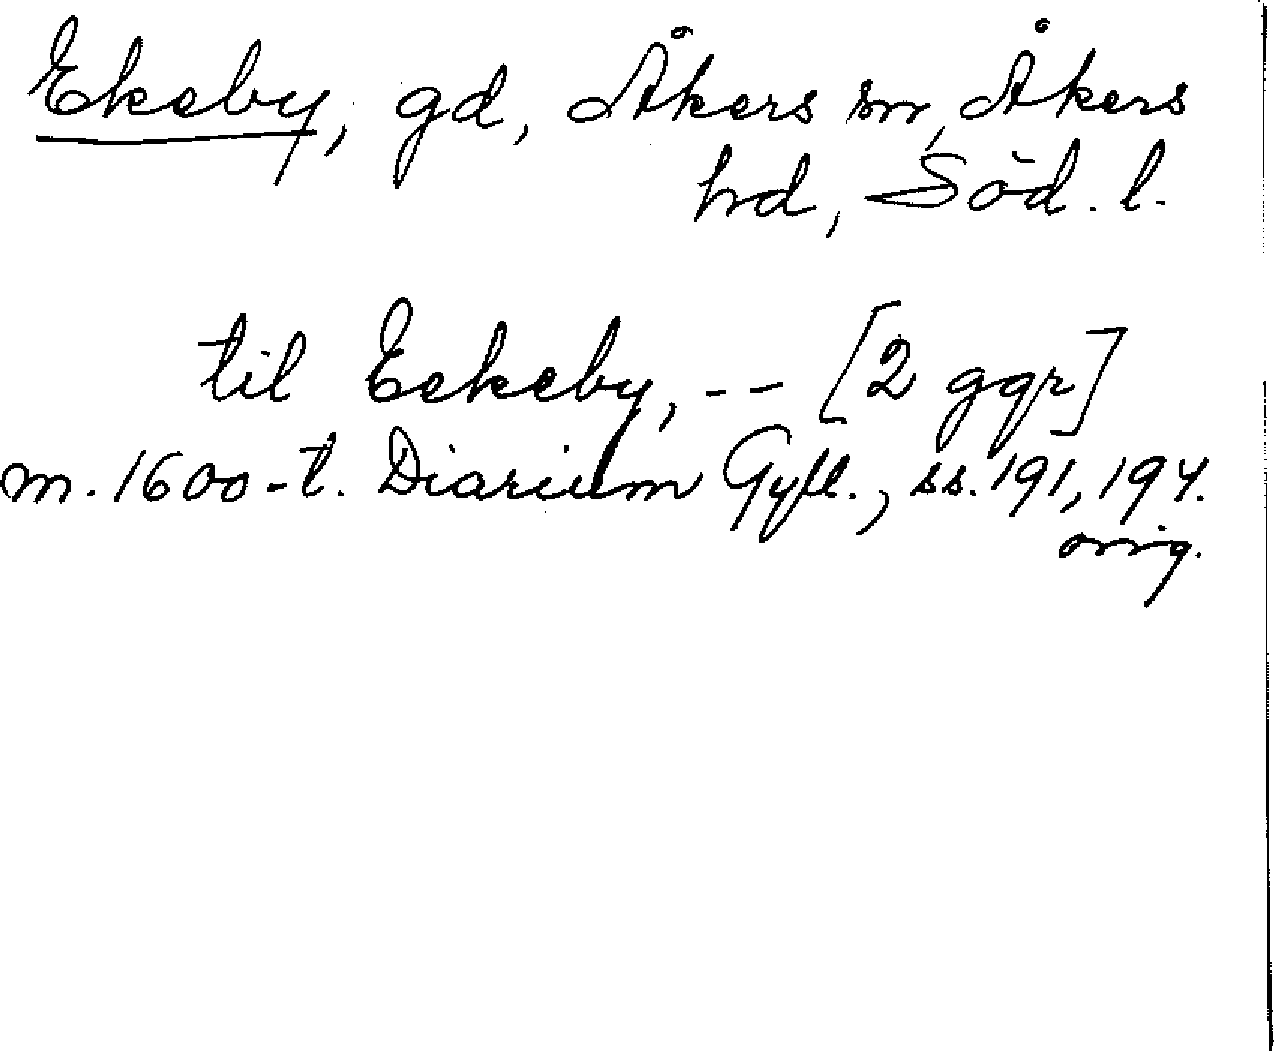 Ekeby, gd, Åkers sn, Åkers
hd, Söd. l.
til Eekeby, -- [2 ggr]
m. 1600-t. Diarium Gyll., ss. 191, 194.
orig.